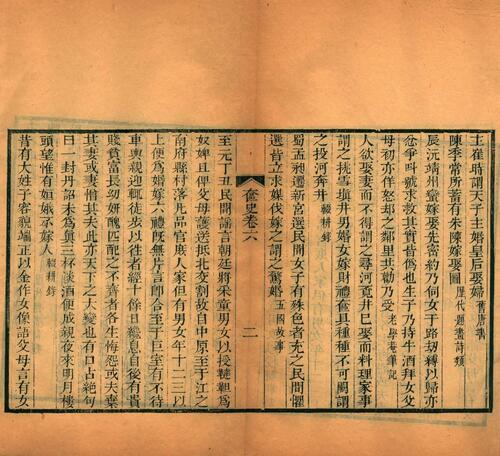 主崔時謂天子主婚皇后娶婦舊唐書
陳季常所蓄有朱陳嫁娶圖歷代題畫詩類
辰沅靖州蠻嫁娶先密約乃伺女于路刼縛以歸亦
忿爭叫號求救其實皆僞也生子乃持牛酒拜女父
母初亦佯怒却之鄰里共勸乃受老學庵筆記
人欲娶妻而不得謂之尋河覓井已娶而料理家事
謂之挑雪塡井男婚女嫁財禮奩具種種不可闕謂
之投河奔井輟耕錄
蜀孟昶遷新宮選民間女子有殊色者充之民間懼
選皆立求媒伐嫁之謂之驚婚五國故事
奩史卷六
二
至元丁丑民間謠言朝廷將采童男女以授韃靼爲
奴婢且俾父母護送抵北交割故自中原至于江之
南府縣村落凡品官庶人家但有男女年十二三以
上便爲婚嫁六禮旣無片言卽合至于巨室有不待
車輿親迎輒徒步以往者經十餘日纔息自後有貴
賤貧富長幼妍醜匹配之不齊者各生悔怨或夫棄
其妻或妻憎其夫此亦天下之大變也有口占絕句
曰一封丹詔未爲眞三杯淡酒便成親夜來明月樓
頭望惟有姮娥不嫁人輟耕錄
昔有大姓子客親端正以金作女像語父母言有女